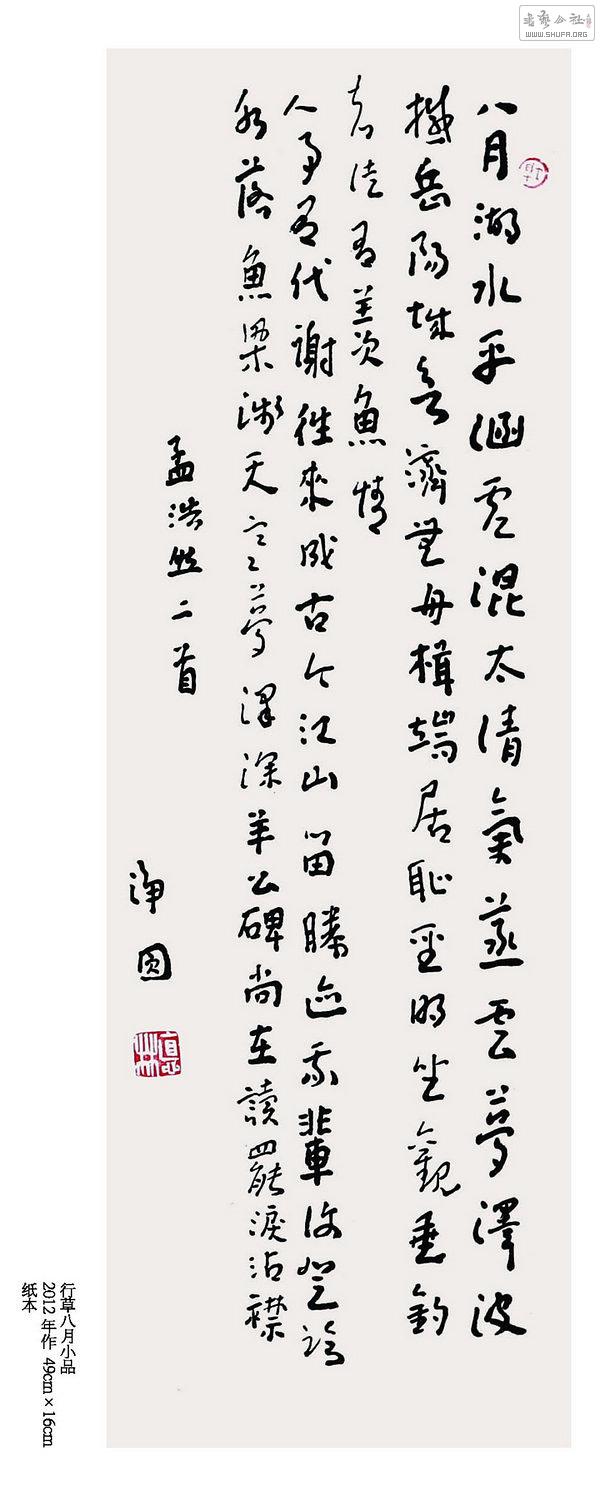 書藝公社
WWW.SHUFA.ORG
八月湖水平涵虛混太清氣蒸雲夢澤波
撼岳陽城欲濟無舟楫端居恥聖明坐觀垂釣
者徒有羨魚情
人事有代謝往來成古今江山留勝迹我輩復登臨
水落魚梁淺天寒夢澤深羊公碑尚在讀罷淚沾襟
孟浩然二首
净圆
行草八月小品
2012 年作 49cm×16cm
纸本